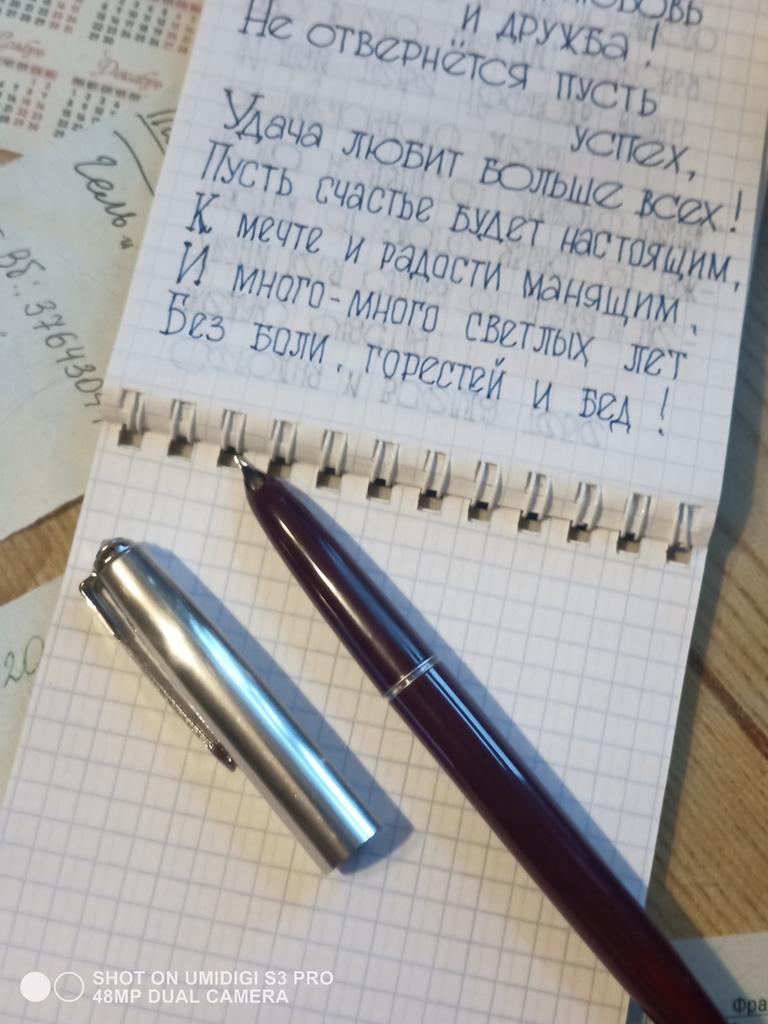 и дружба!
Не отвернётся пусть
успех,
Удача любит больше всех!
Пусть счастье будет настоящим,
К мечте и радости манящим,
И много-много светлых лет
Без боли, горестей и бед!
Декабрь
Гель
ВБ:. 3764304
20
SHOT ON UMIDIGI S3 PRO
48MP DUAL CAMERA
Фра